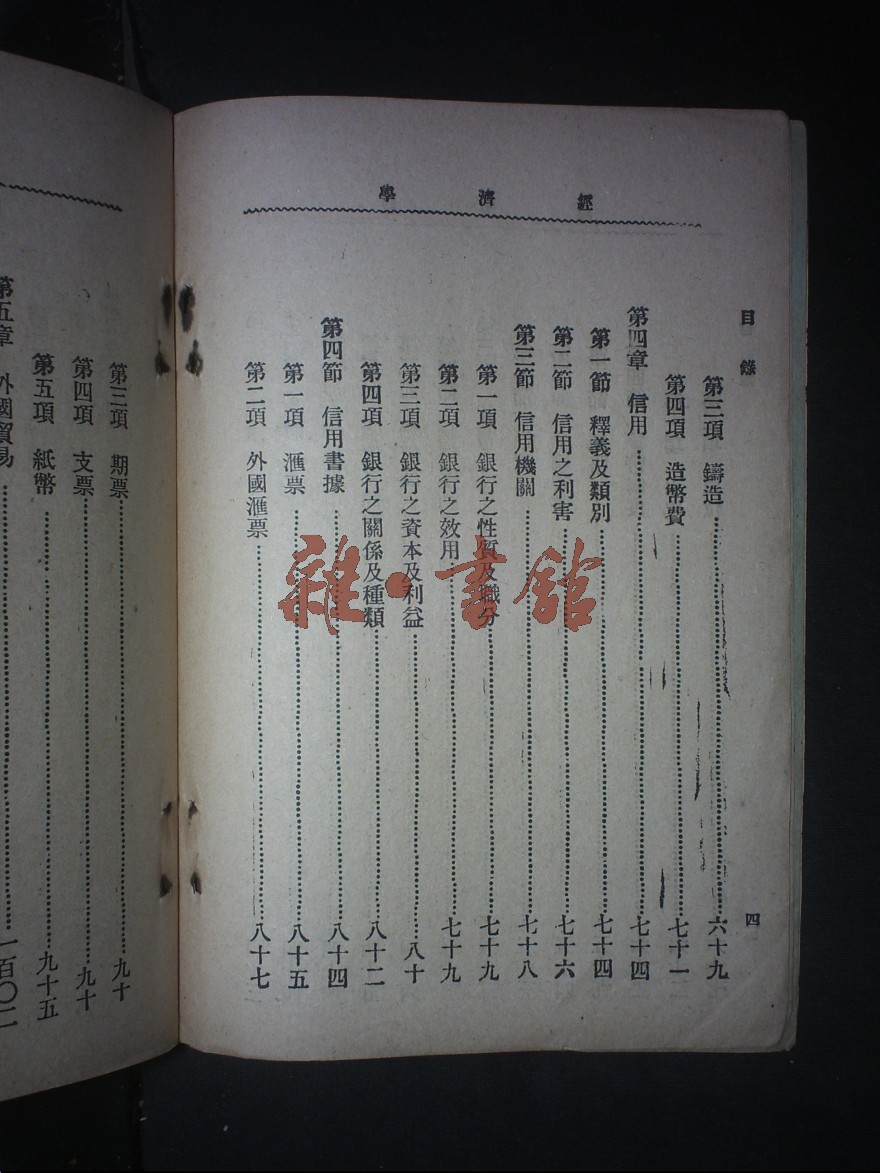 經濟學
目錄 四
第三項 鑄造 六十九
第四項 造幣費 七十一
第四章 信用 七十四
第一節 釋義及類別 七十四
第二節 信用之利害 七十六
第三節 信用機關 七十八
第一項 銀行之性質及職分 七十九
第二項 銀行之效用 七十九
第三項 銀行之資本及利益 八十
第四項 銀行之關係及種類 八十二
第四節 信用書據 八十四
第一項 滙票 八十五
第二項 外國滙票 八十七
第三項 期票 九十
第四項 支票 九十
第五項 紙幣 九十五
第五章 外國貿易 一百〇二
雜·書館